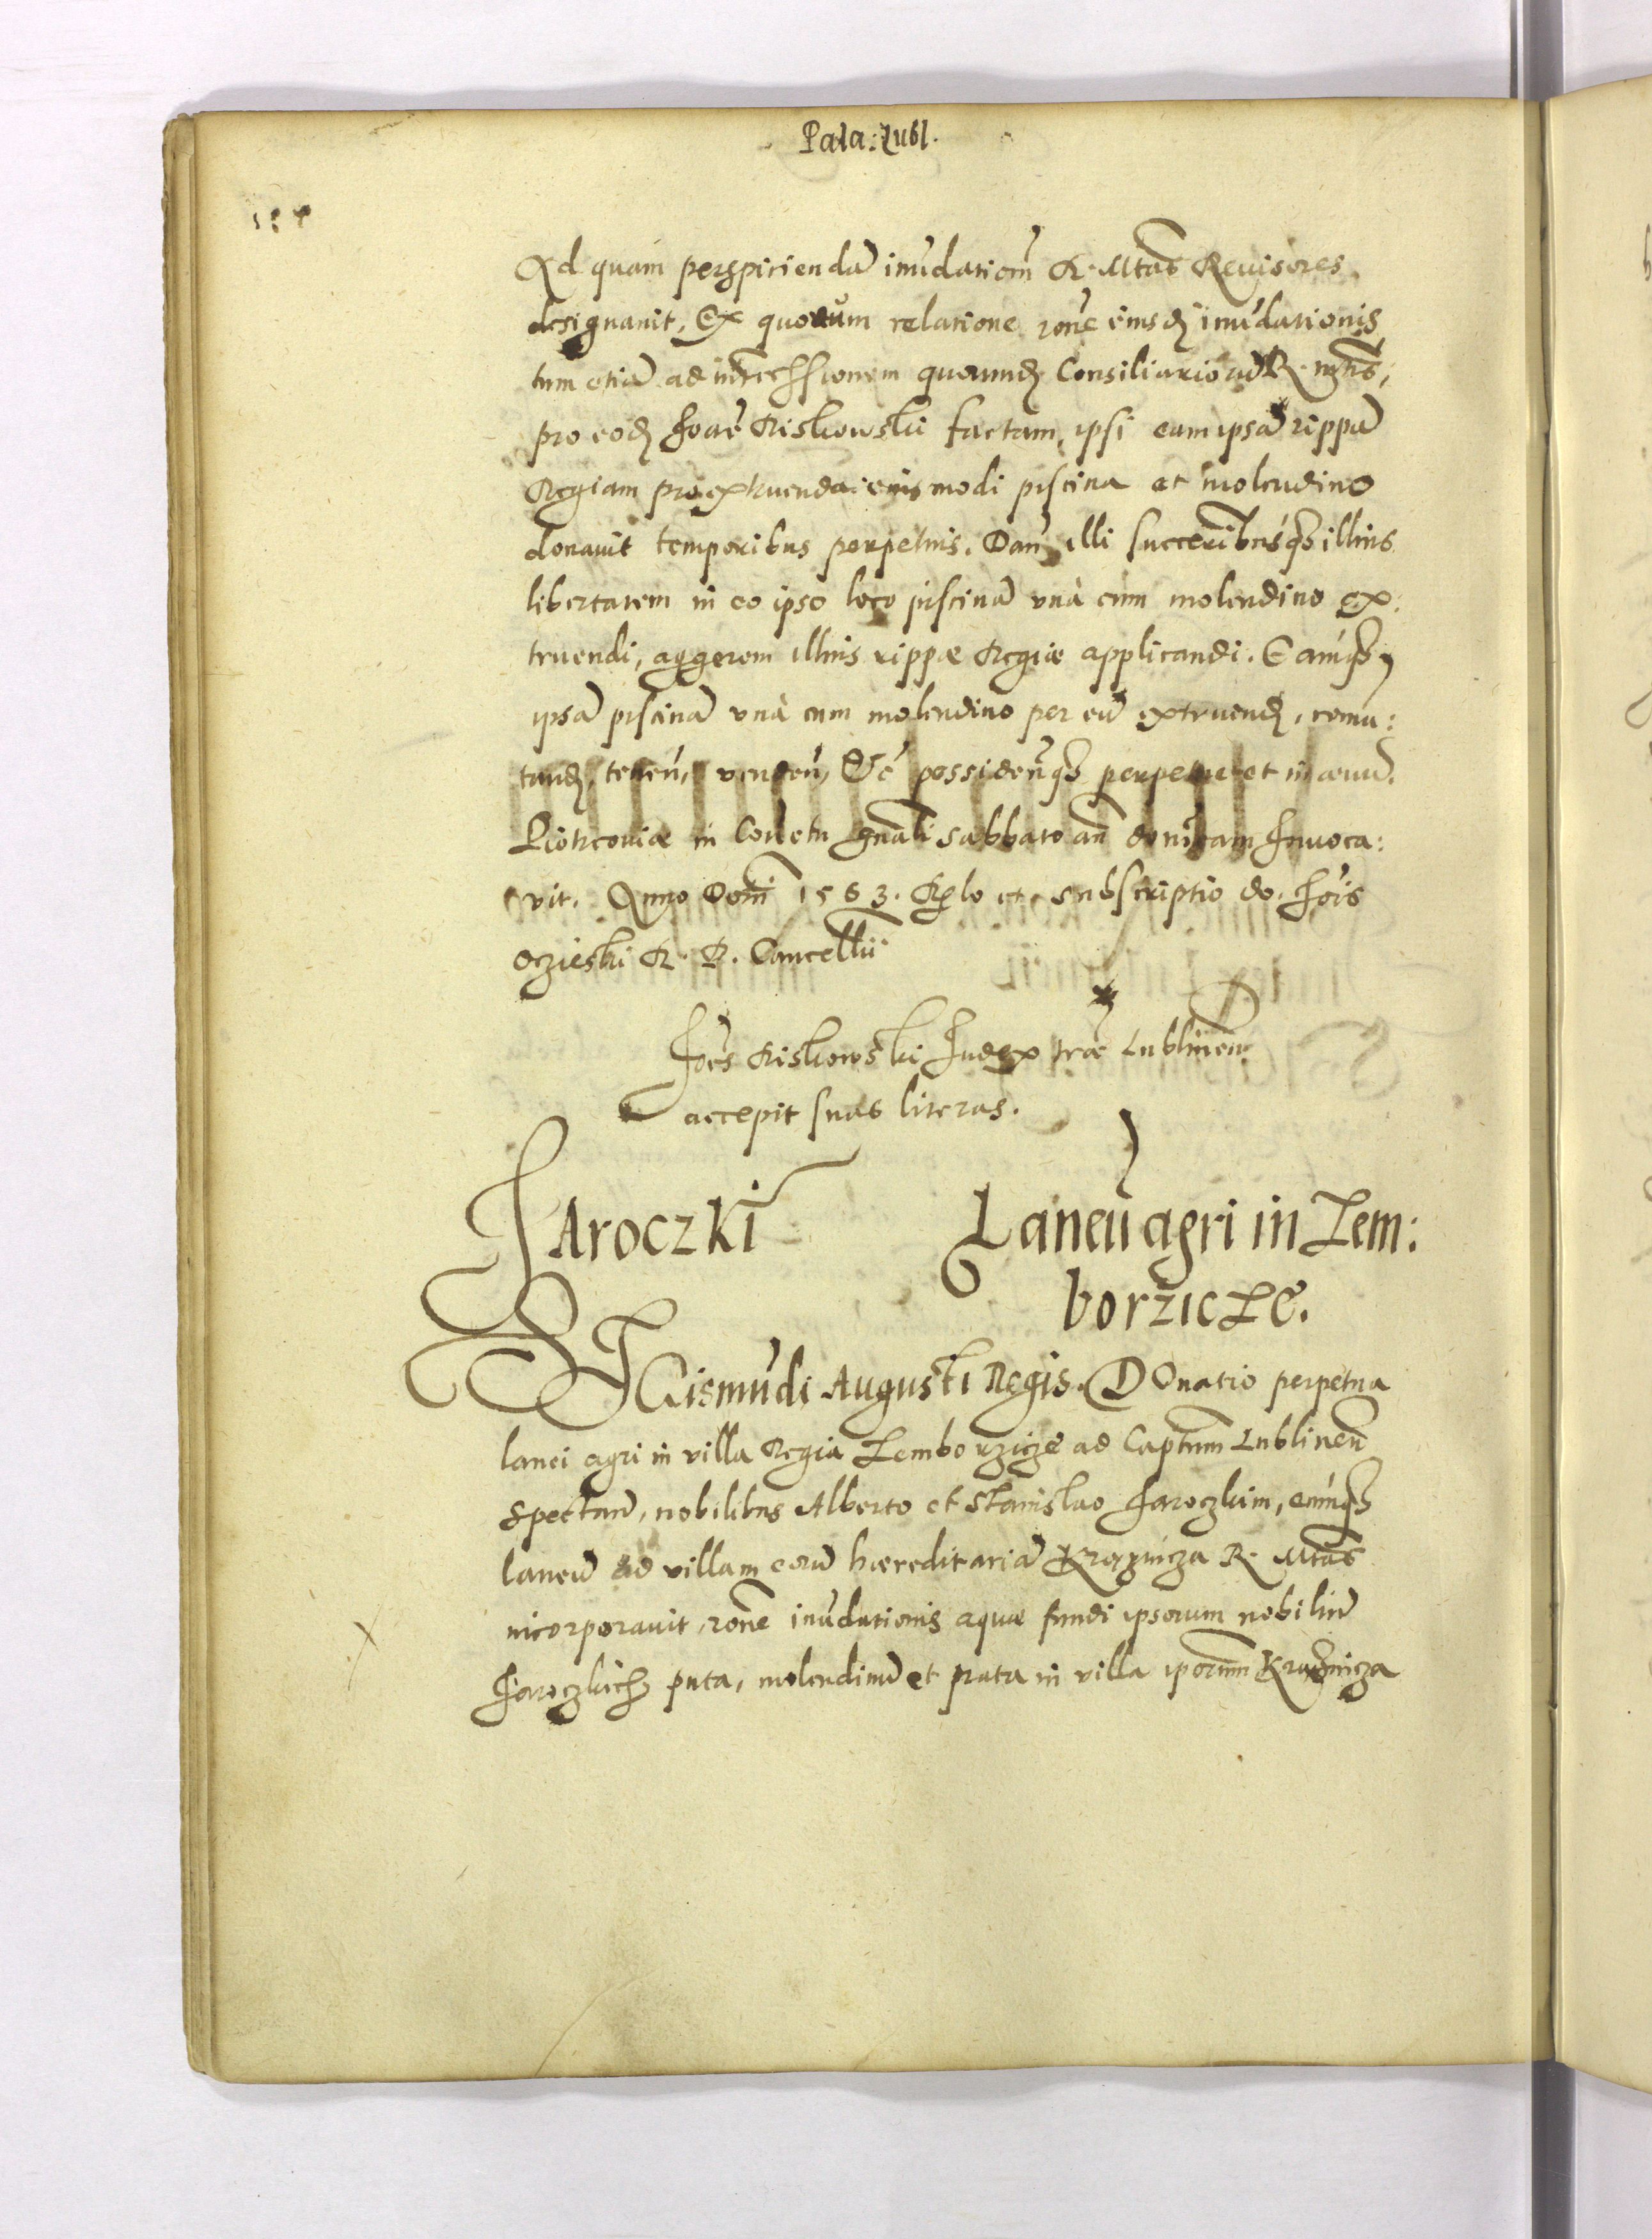 Pala: Lubl.
Ad quam perspiciendā inūdationē R. Mtas Revisores
designavit, Ex quorum relatione rōne eiusdē inūdationis
tum etiā ad intrcessionem quorundē Consiliariorū R. Mtis,
pro eodē Joāne Riskowski factam, ipsi eam ipsā rippā
Regiam pro extruenda eiusmodi piscina et molendino
donavit temporibus perpetuis. Dan̄ illi succeribusq illius
libertatem in eo ipso loco piscinā unà cum molendino ex:
truendi, aggerem illius rippæ Regiæ applicandi. Eamq
ipsā piscinā unà cum molendino per eū extruendē, comu:
tandē, tenen̄, venden̄, &c possidenq perpetuo et in ævū.
Piotrcoviæ in Con̄etu gn̄ali sabbato an̄ dominicam Invoca:
vit. Anno Domi 1563. Rlo et subscriptio do. Jois
oczieski R. P. Cancellii
Joēs Riskowski Judex træ Lublinen̄
accepit suas literas.
JAroczki Laneū agri in Zem:
borzicze.
SIGismūdi Augusti Regis. DOnatio perpetua
lanei agri in villa Regia Zemborzicze ad Captum Lublinen̄
spectan̄, nobilibus Alberto et Stanislao Jaroczkim, eumq
laneū ad villam eorū hæreditariā Krężnicza R. Mtas
incorporavit, rōne inūdationis aquæ fundi ipsorum nobiliū
Jaroczkich puta, molendinū et prata in villa iporum Krężnicza